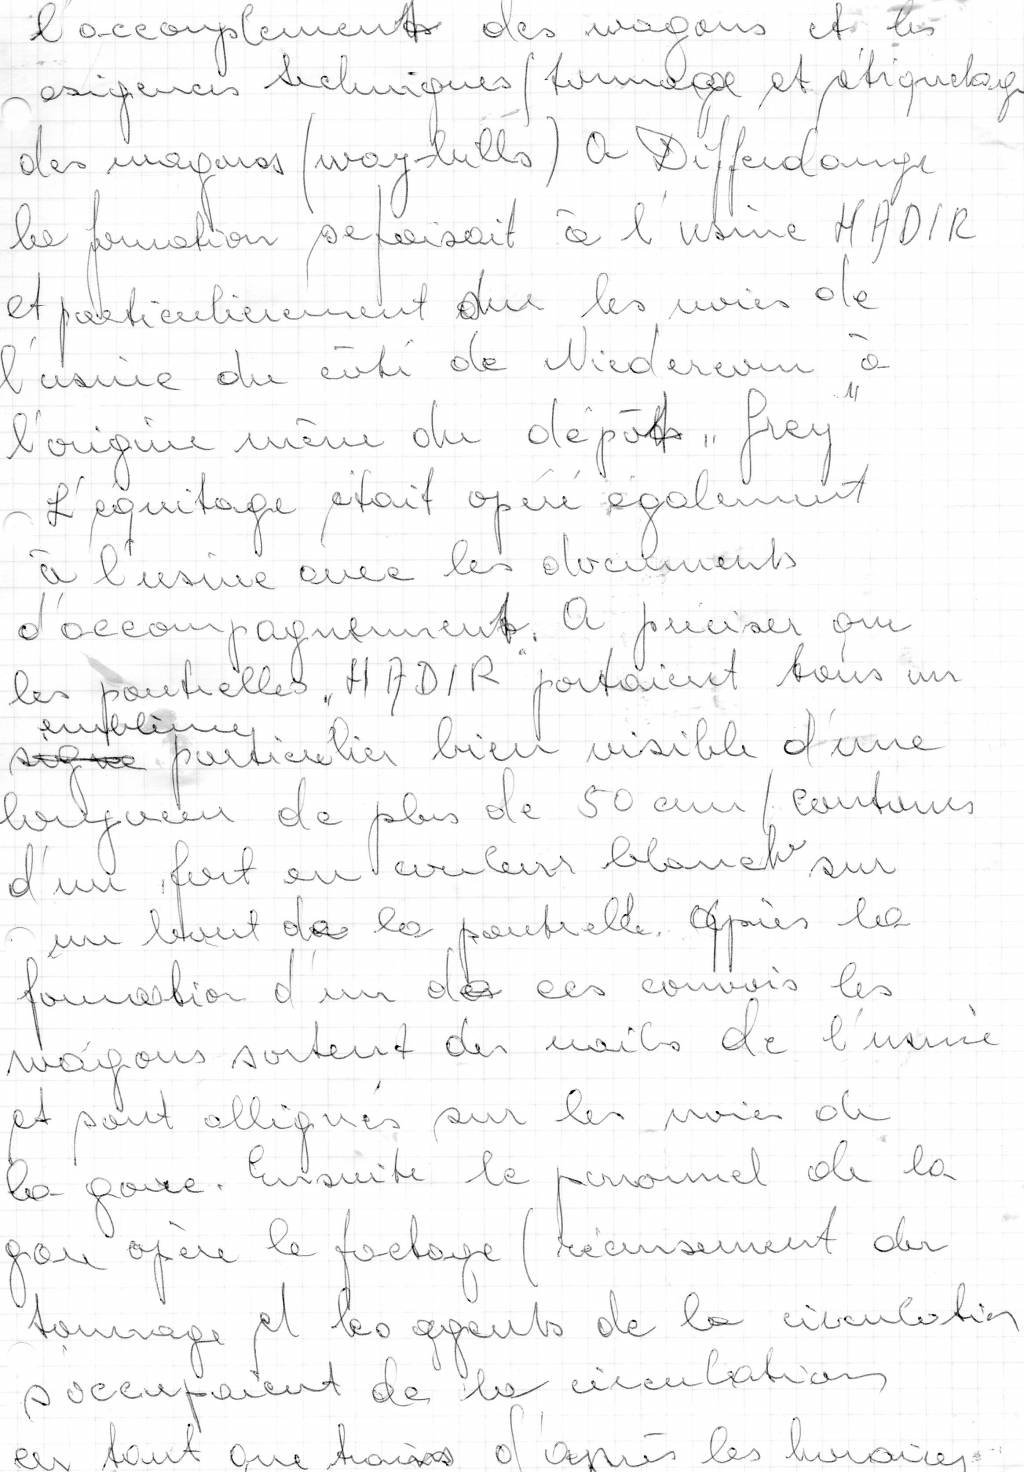 l'accouplement des wagons et les
exigences techniques (tonnage et étiquetage
des wagons (way-bills) A Differdange
la formation se faisait à l'usine HADIR
et particulierement sur les voies de
l'usine du côté de Niedercorn à
l'origine même du dépôt „Grey"
L'équitage était opéré également
à l'usine avec les documents
d'accompagnement. A préciser que
les poutrelles „HADIR" portaient tous un
emblème particulier bien visible d'une
longueur de plus de 50 cm (contours
d'un fort en couleur blanche sur
un bout de la poutrelle. Après la
formation d'un de ces convois les
wagons sortent des voies de l'usine
et sont allignés sur les voies de
la gare. Ensuite le personnel de la
gare opère le factage (récensement du
tonnage et les agents de la circulation
s'occupaient de la circulation
en tant que trains d'après les horaires